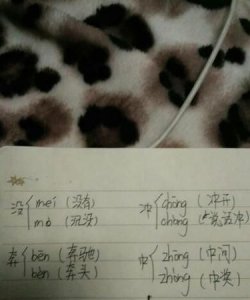 没 méi (没有)
mò (沉没)
冲 chōng (冲开)
chòng (说话冲)
奔 bēn (奔驰)
bèn (奔头)
中 zhōng (中间)
zhòng (中奖)